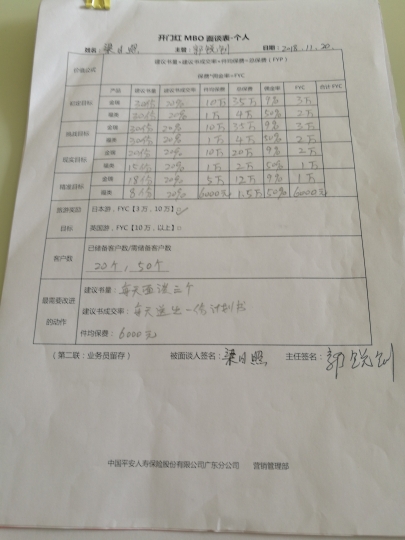 开门红 MBO 面谈表-个人
姓名：梁日照 主管：郭锐钊 日期：2018.11.20
价值公式 建议书量*建议书成交率*件均保费=总保费（FYP）
保费*佣金率=FYC
产品 建议书量 建议书成交率 件均保费 总保费 佣金率 FYC 合计 FYC
初级目标 金瑞 20% 10万 35万 9% 3万
福类 30份 20% 1万 4万 50% 2万
挑战目标 金瑞 30份 20% 10万 35万 9% 3万
福类 30份 20% 1万 4万 50% 2万
现实目标 金瑞 20份 20% 10万 20万 9% 2万
福类 15份 20% 1万 2万 50% 1万
金瑞 18份 20% 5万 12万 9% 1万
福类 8份 20% 6000元 1.5万 50% 6000元
旅游奖励 日本游，FYC【3万，10万】
目标 英国游，FYC【10万，以上】
客户数 已储备客户数/需储备客户数
20个，50个
最需要改进的动作 建议书量：每天面谈三个
建议书成交率：每天送出一份计划书
件均保费：6000元
（第二联：业务员留存） 被面谈人签名：梁日照 主任签名：郭锐钊
中国平安人寿保险股份有限公司广东分公司 营销管理部